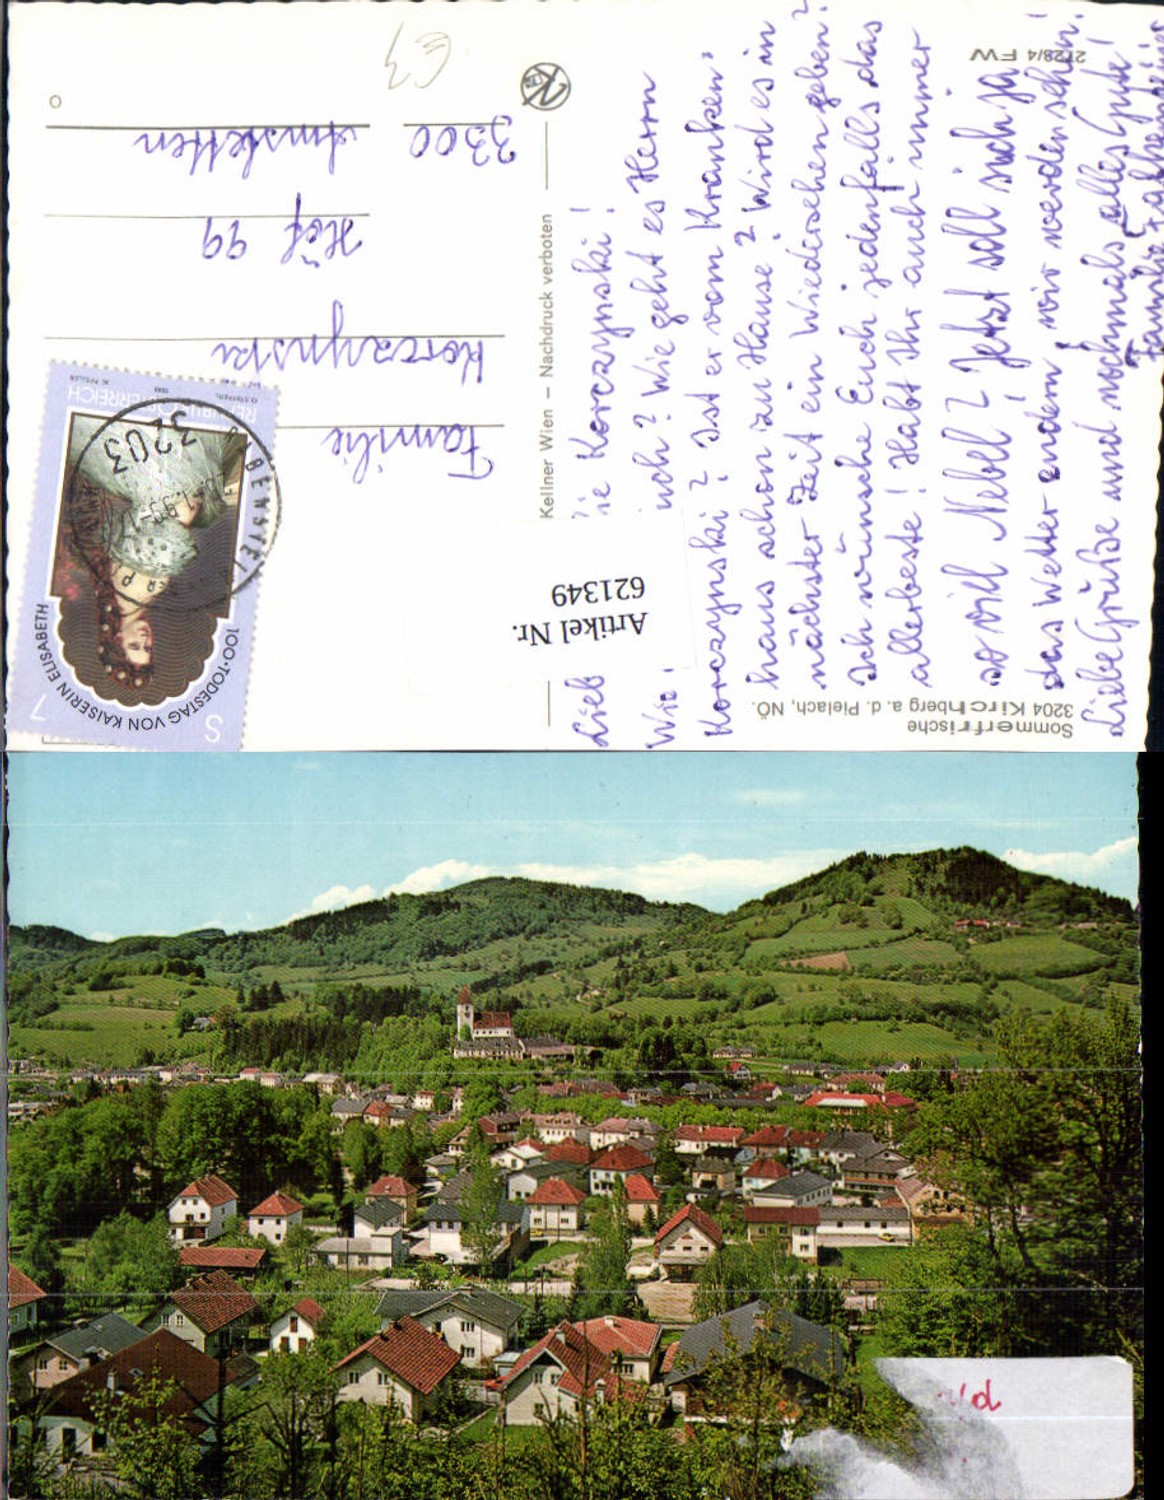 2728/4 FW
Sommerfrische
3204 Kirchberg a. d. Pielach, NÖ.
Lieb ie Korczynski!
Wie uch? Wie geht es Herrn
Korczynski? Ist er vom Kranken-
haus schon zu Hause? Wird es in
nächster Zeit ein Wiedersehen geben?
Ich wünsche Euch jedenfalls das
allerbeste! Habt Ihr auch immer
so viel Nebel? Jetzt soll sich ja
das Wetter ändern, wir werden sehen!
Liebe Grüße und nochmals alles Gute!
Familie
Kellner Wien – Nachdruck verboten
Artikel Nr.
621349
Familie
Korczynski
Höf 99
3300 Amstetten
€3
REPUBLIK ÖSTERREICH
100. TODESTAG VON KAISERIN ELISABETH
S 7
3203